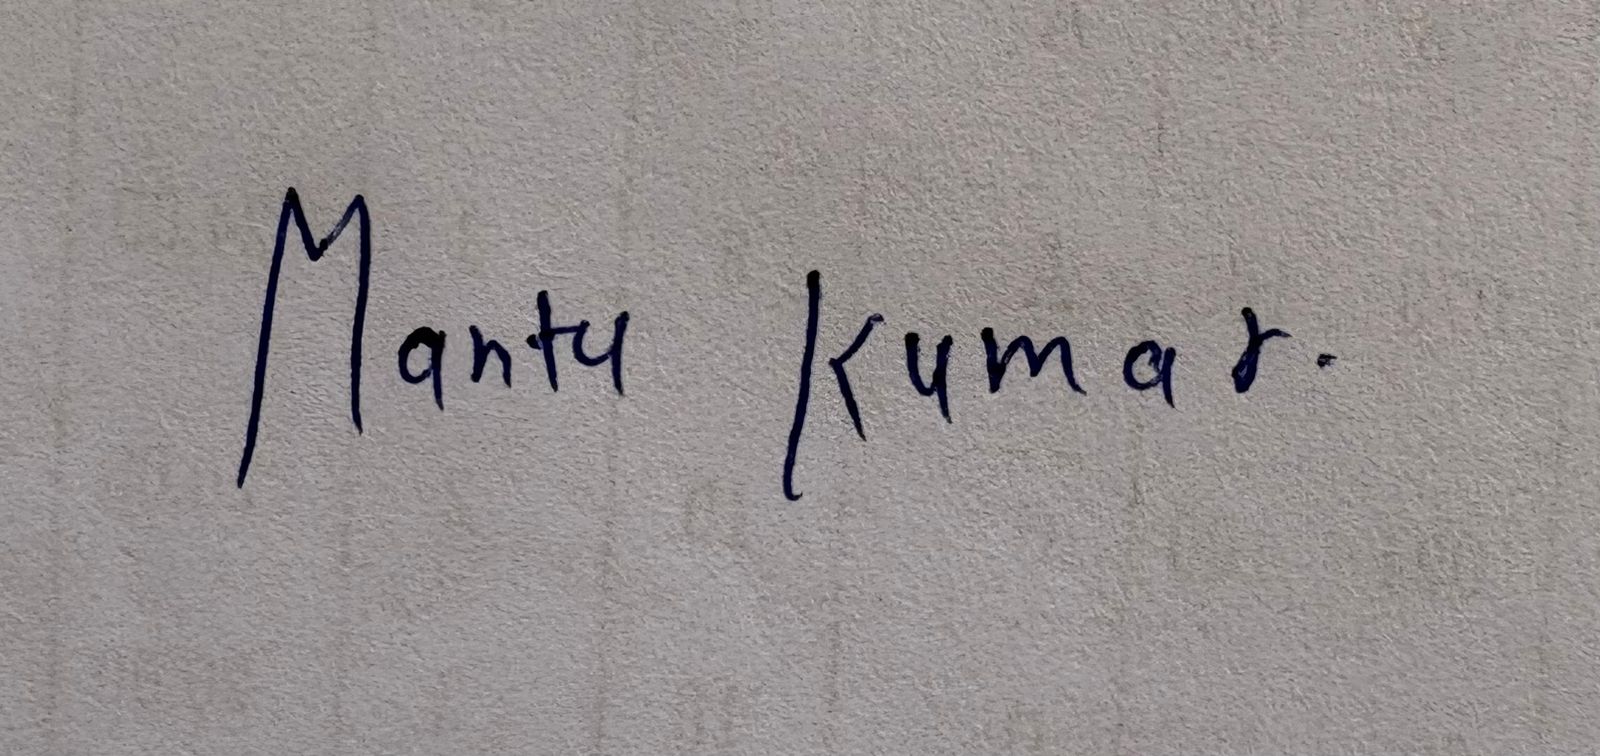 Mantu Kumar.